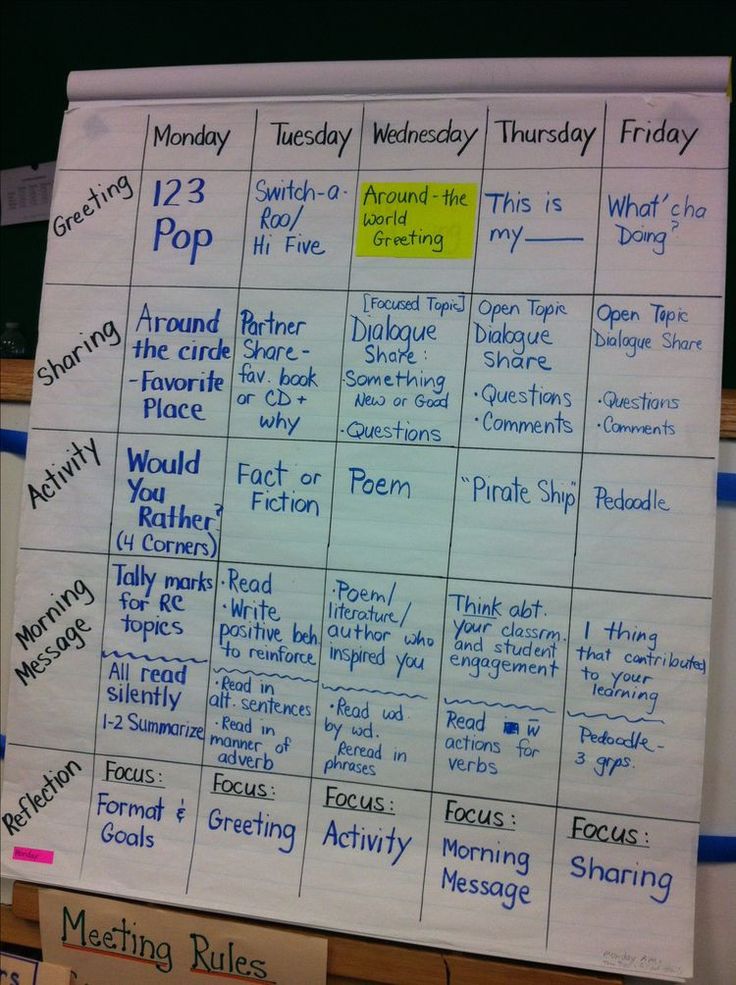 Monday
Tuesday
Wednesday
Thursday
Friday
Greeting
123
Pop
Switch-a-
Roo/
Hi Five
Around-the
world
Greeting
This is
my____
What'cha
Doing?
Sharing
Around
the circle
-Favorite
Place
Partner
Share-
fav. book
or CD +
why
[Focused Topic]
Dialogue
Share:
·Something
New or Good
·Questions
Open Topic
Dialogue
Share
·Questions
·Comments
Open Topic
Dialogue Share
·Questions
·Comments
Activity
Would
You
Rather?
(4 Corners)
Fact or
Fiction
Poem
"Pirate Ship"
Pedoodle
Morning
Message
Tally marks
for RC
topics
All read
silently
1-2 Summarize
·Read
·Write
positive beh.
to reinforce
·Read in
alt. sentences
·Read in
manner of
adverb
·Poem/
literature/
author who
inspired you
·Read wd.
by wd.
Reread in
phrases
Think abt.
your classrm.
and student
engagement
Read w̅
actions for
verbs
1 thing
that contributed
to your
learning
Pedoodle-
3 grps.
Reflection
Monday
Focus:
Format &
Goals
Focus:
Greeting
Focus:
Activity
Focus:
Morning
Message
Focus:
Sharing
Meeting Rules
Monday A.M.